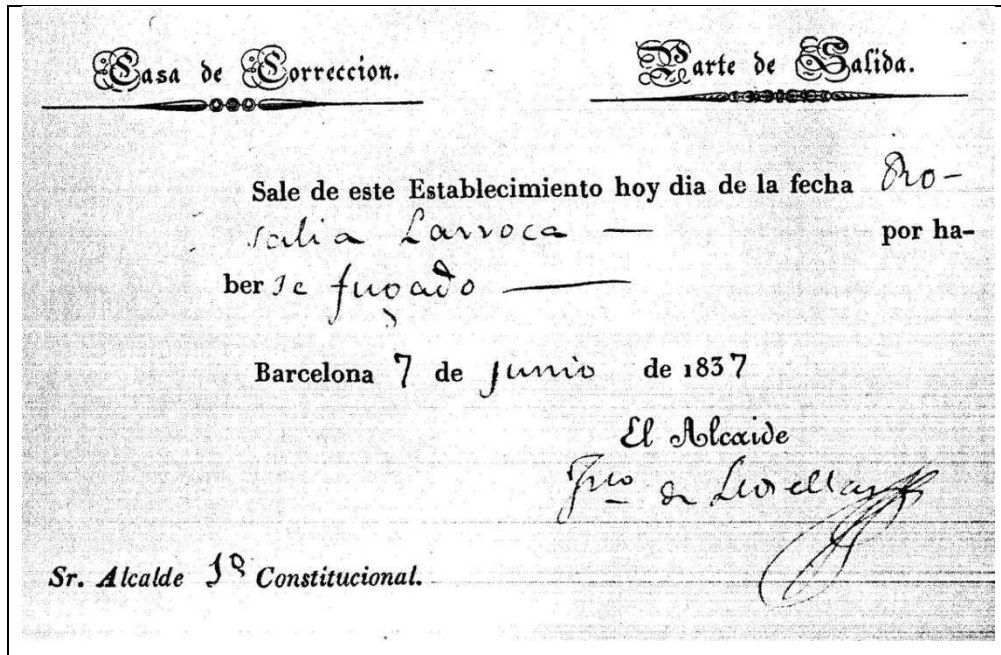 Casa de Correccion.
Parte de Salida.
Sale de este Establecimiento hoy dia de la fecha Ro-
salia Larroca — por ha-
ber se fugado —
Barcelona 7 de junio de 1837
El Alcaide
Fco. de
Sr. Alcalde 1º Constitucional.